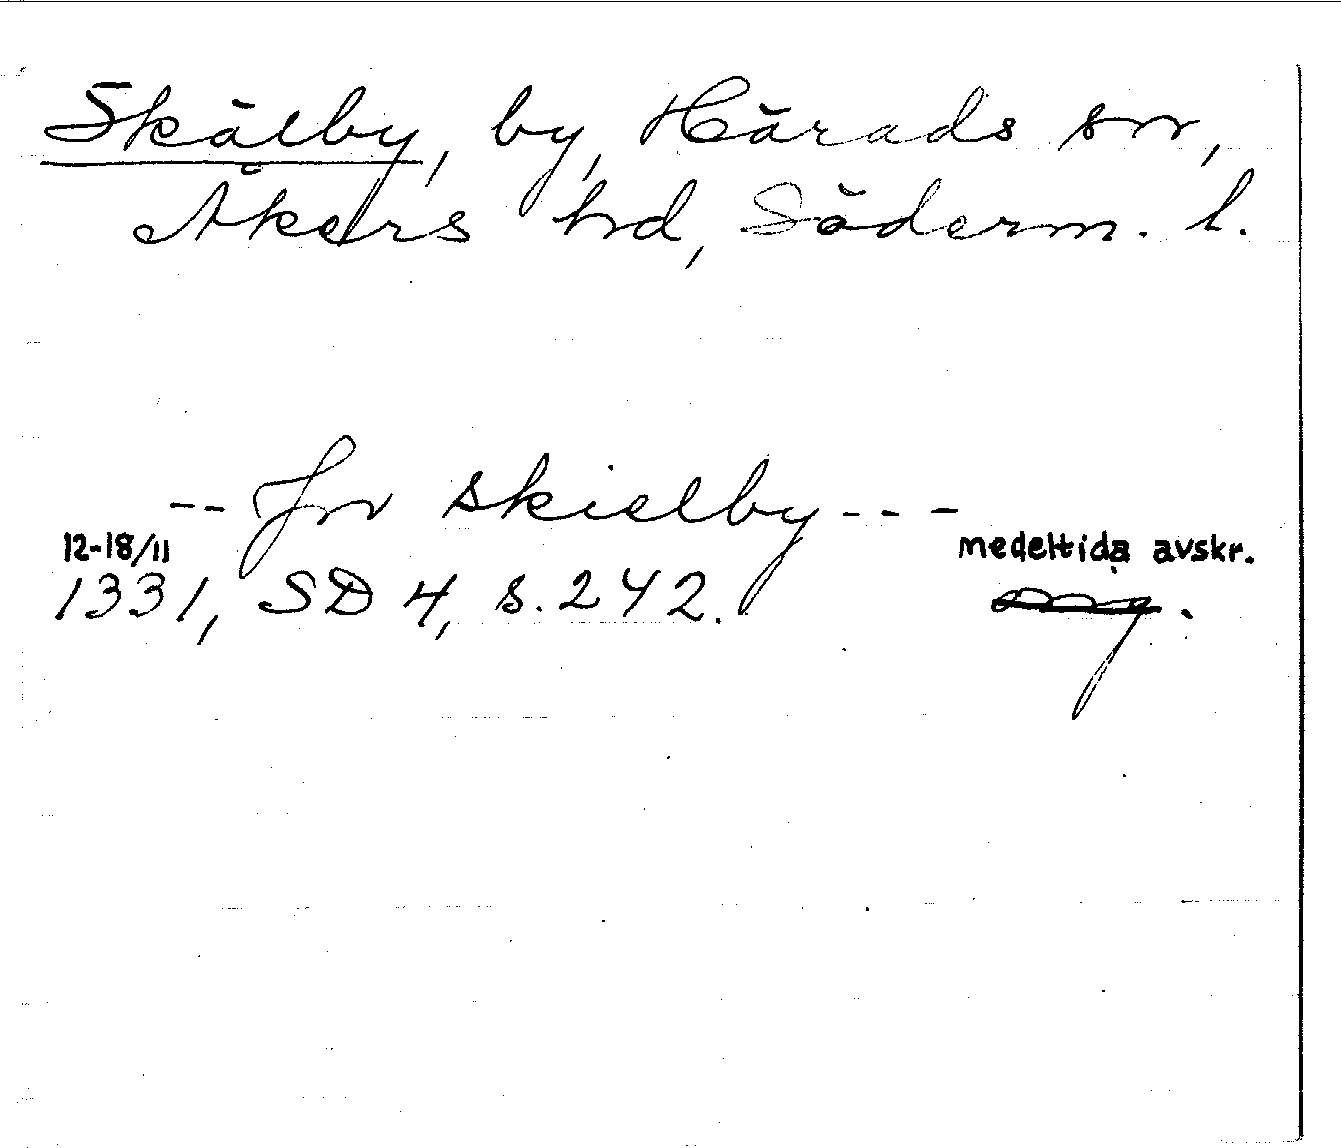 Skälby, by, Härads sn,
Åkers hd, Söderm. l.
-- jn skielby ---
12-18/11 medeltida avskr.
1331, SD 4, s. 242.